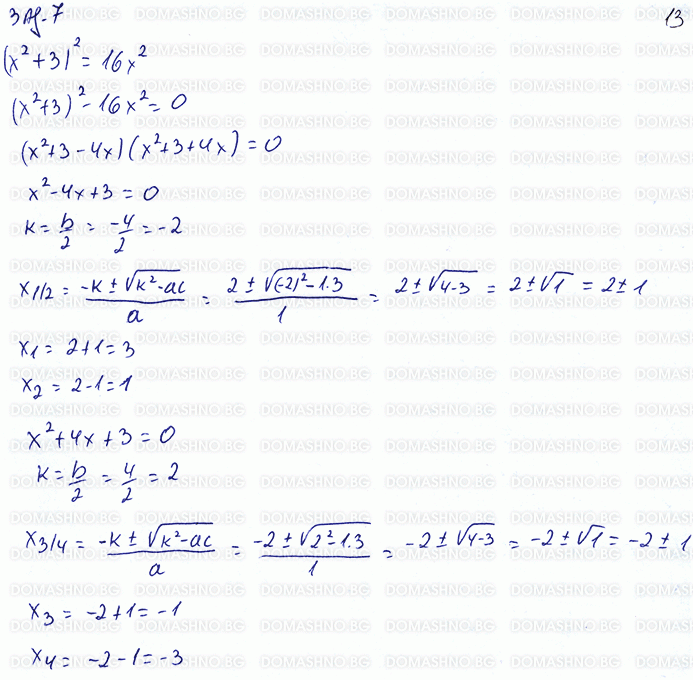 Зад. 7
13
(x²+3)² = 16x²
(x²+3)² - 16x² = 0
(x²+3-4x)(x²+3+4x) = 0
x²-4x+3 = 0
k = b/2 = -4/2 = -2
x1/2 = (-k ± √(k²-ac))/a = (2 ± √((-2)²-1.3))/1 = 2 ± √(4-3) = 2 ± √1 = 2 ± 1
x1 = 2+1 = 3
x2 = 2-1 = 1
x²+4x+3 = 0
k = b/2 = 4/2 = 2
x3/4 = (-k ± √(k²-ac))/a = (-2 ± √(2²-1.3))/1 = -2 ± √(4-3) = -2 ± √1 = -2 ± 1
x3 = -2+1 = -1
x4 = -2-1 = -3
DOMASHNO.BG